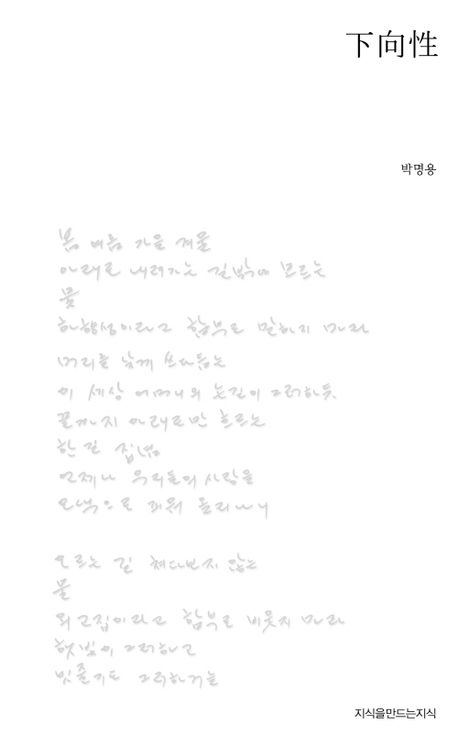 下向性
박명용
봄 여름 가을 겨울
아래로 내려가는 길밖에 모르는
물
하향성이라고 함부로 말하지 마라
머리를 낮게 쓰다듬는
이 세상 어머니의 눈길이 그러하듯
끝까지 아래로만 흐르는
한 길 집념
언제나 우리들의 사랑을
모색으로 키워 올리나니
오르는 길 쳐다보지 않는
물
외고집이라고 함부로 비웃지 마라
햇빛이 그러하고
빗줄기도 그러하거늘
지식을만드는지식